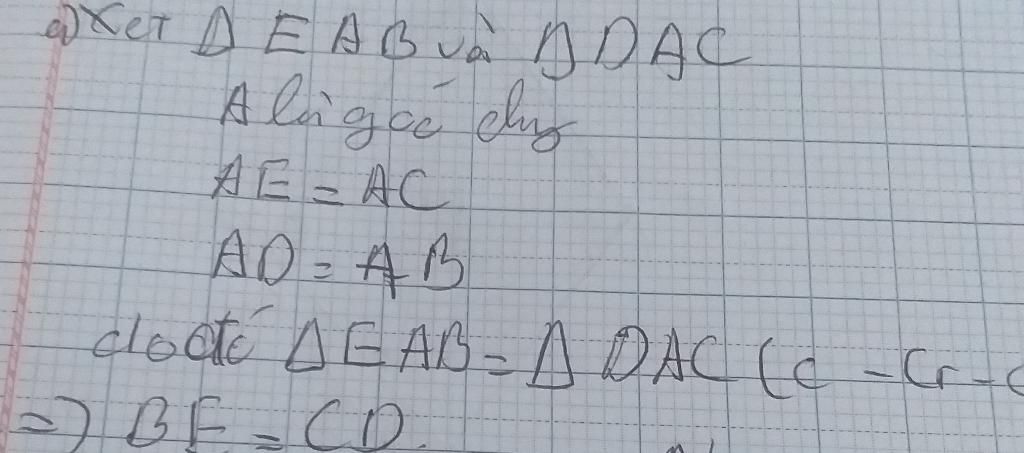 a) Xét Δ EAB và Δ DAC
A là góc chg
AE = AC
AD = AB
do đó Δ EAB = Δ DAC (c - G -
=) BE = CD.